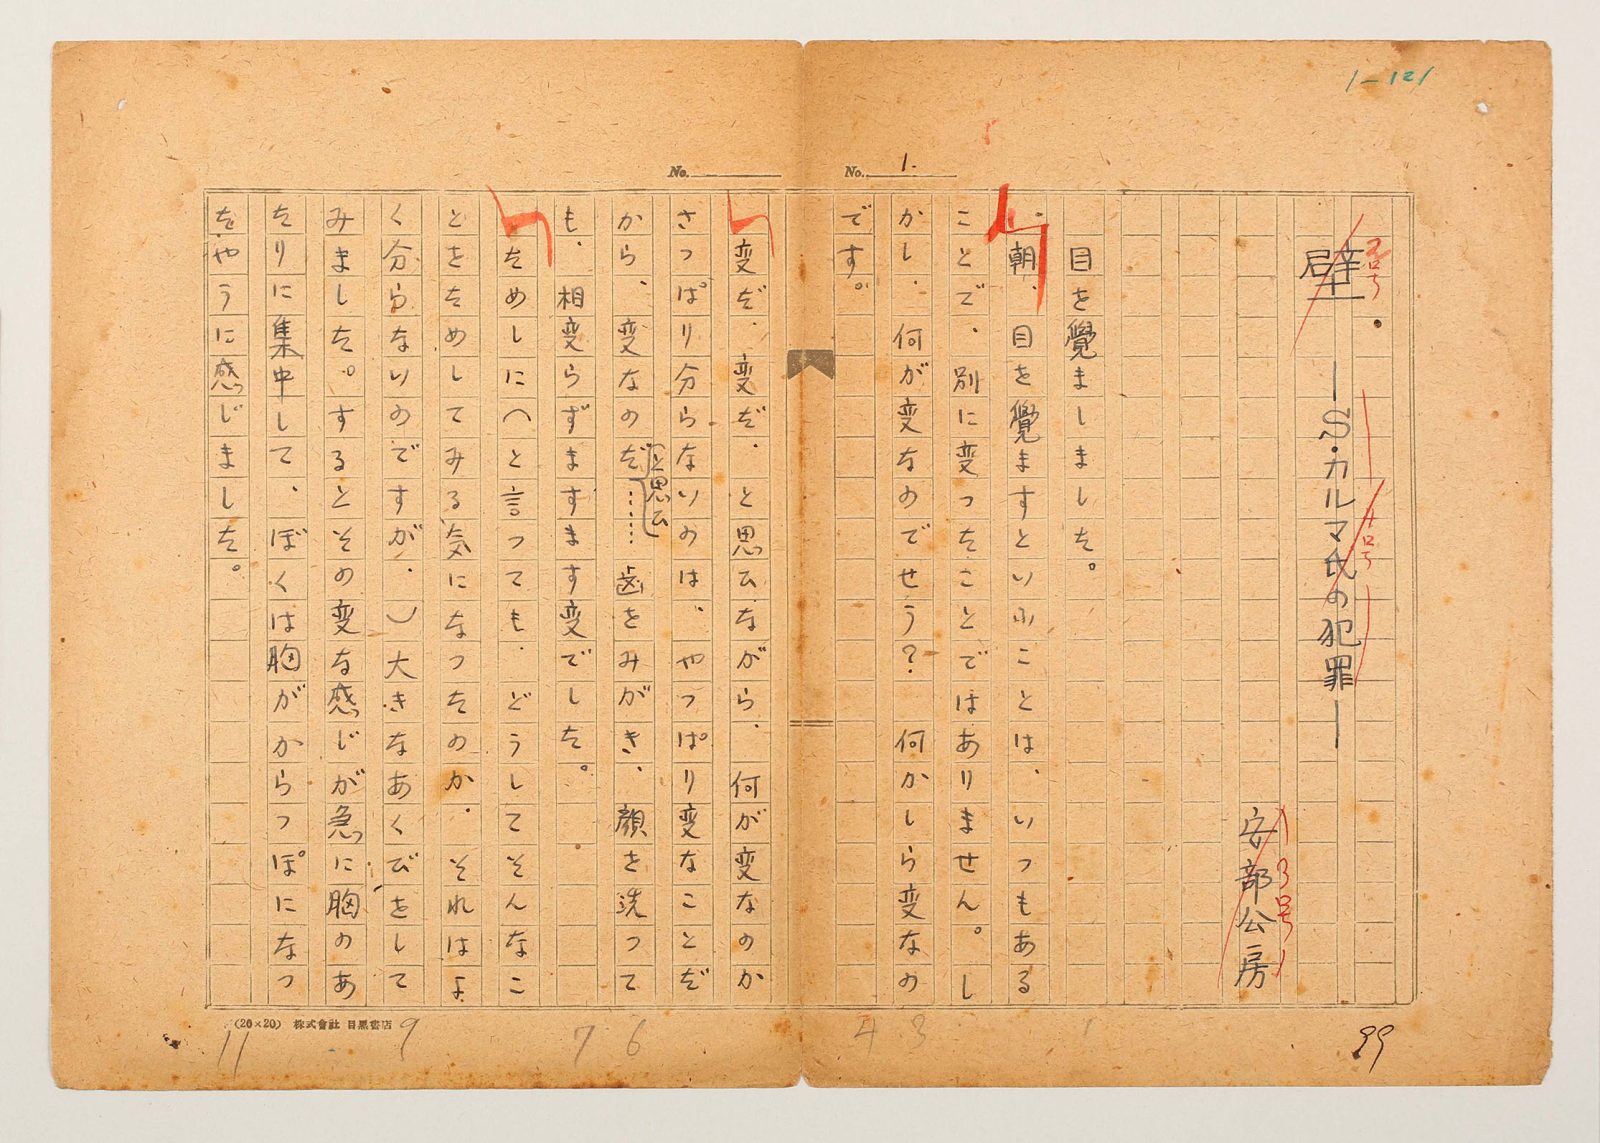 1-121
No. 1.
No.
壁.
2号
―S・カルマ氏の犯罪―
4号
安部公房
3号
目を覺ましました。
朝、目を覺ますといふことは、いつもある
ことで、別に変つたことではありません。し
かし、何が変なのでせう?何かしら変なの
です。
変だ、変だ、と思ひながら、何が変なのか
さつぱり分らないのは、やつぱり変なことだ
から、変なのだ……歯をみがき、顔を洗つて
(と思ひ)
も、相変らずますます変でした。
ためしに(と言つても、どうしてそんなこ
とをためしてみる気になつたのか、それはよ
く分らないのですが、)大きなあくびをして
みました。するとその変な感じが急に胸のあ
たりに集中して、ぼくは胸がからつぽになつ
たやうに感じました。
(20×20) 株式會社 目黒書店
11
9
7
6
4
3
1
99